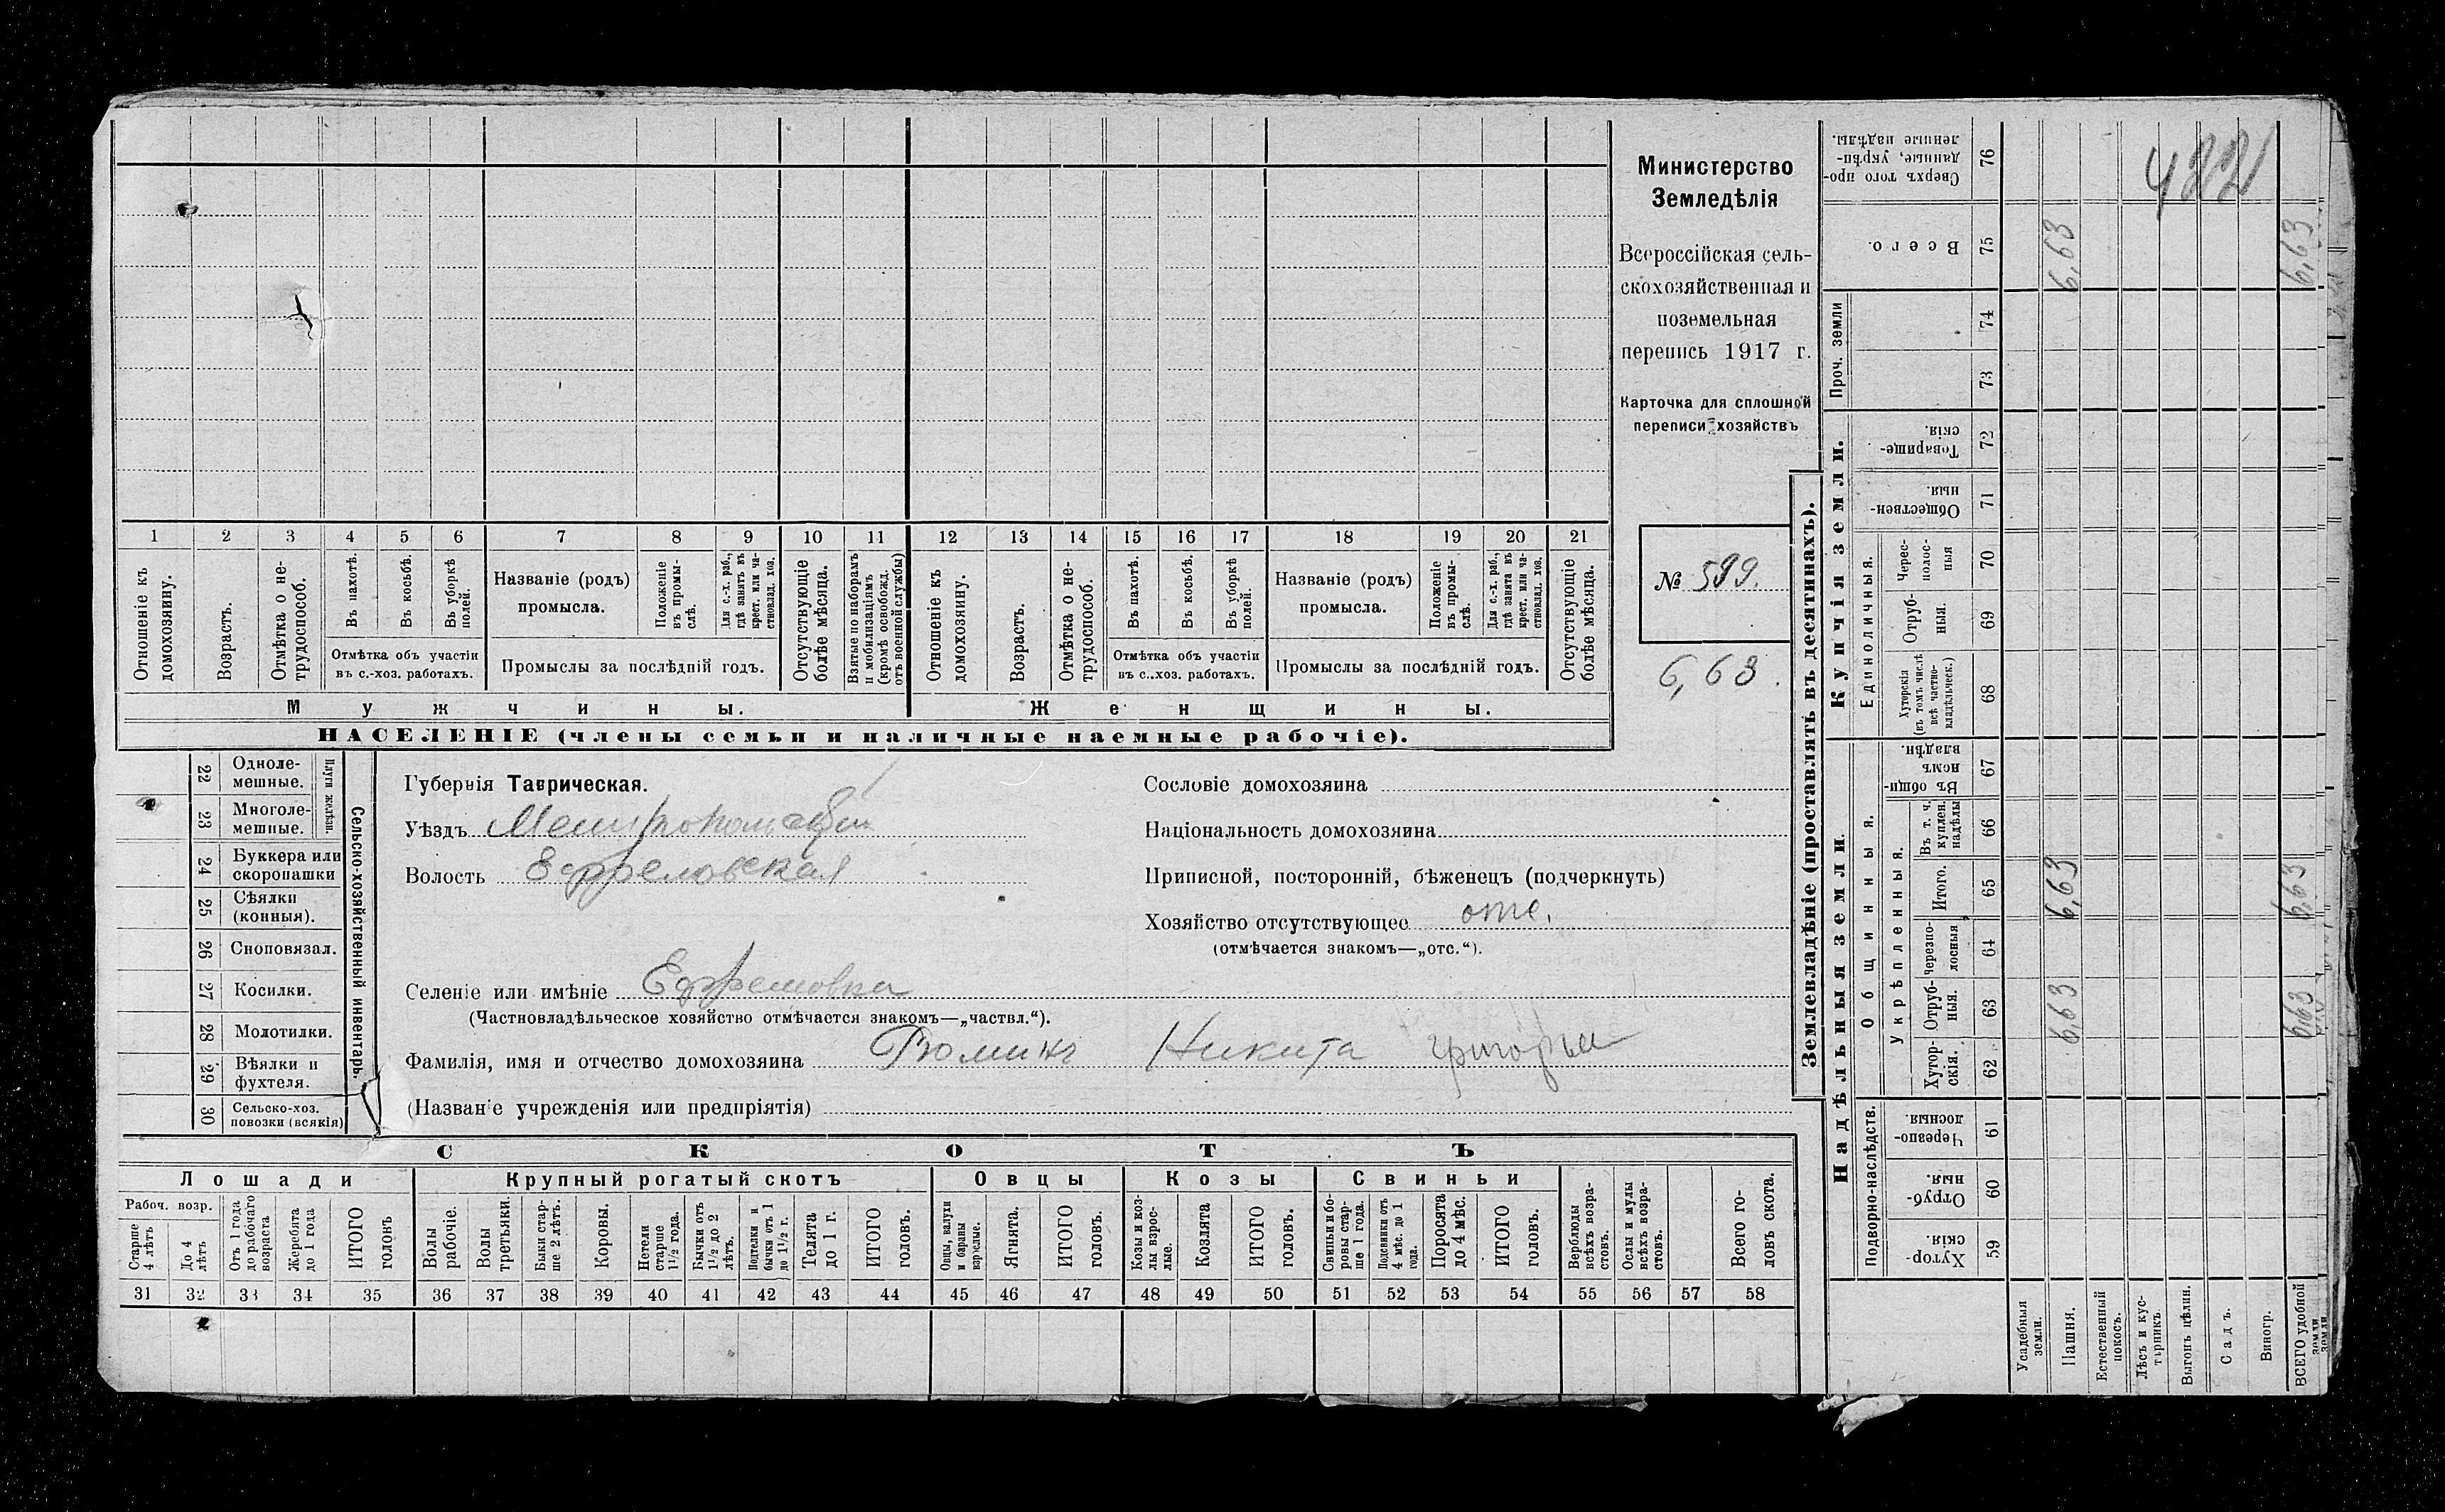 Министерство
Земледѣлія
Всероссійская сель-
скохозяйственная и
поземельная
перепись 1917 г.
Карточка для сплошной
переписи хозяйствъ
№ 599.
6,63.
1 2 3 4 5 6 7 8 9 10 11 12 13 14 15 16 17 18 19 20 21
Отношеніе къ домохозяину.
Возрастъ.
Отмѣтка о не-трудоспособ.
Въ пахотѣ.
Въ косьбѣ.
Въ уборкѣ полей.
Отмѣтка объ участіи
въ с.-хоз. работахъ.
Названіе (родъ)
промысла.
Положеніе въ промы-слѣ.
Для с.-х. раб., гдѣ занятъ въ крест. или ча-стновлад. хоз.
Промыслы за послѣдній годъ.
Отсутствующіе болѣе мѣсяца.
Взятые по наборамъ и мобилизаціямъ (кромѣ освобожд. отъ военной службы)
Отношеніе къ домохозяину.
Возрастъ.
Отмѣтка о не-трудоспособ.
Въ пахотѣ.
Въ косьбѣ.
Въ уборкѣ полей.
Отмѣтка объ участіи
въ с..хоз. работахъ.
Названіе (родъ)
промысла.
Положеніе въ промы-слѣ.
Для с.-х. раб., гдѣ занята въ крест. или ча-стновлад. хоз.
Промыслы за послѣдній годъ.
Отсутствующіе болѣе мѣсяца.
Мужчины.
Женщины.
НАСЕЛЕНІЕ (члены семьи и наличные наемные рабочіе).
22 Одноле-мешные.
23 Многоле-мешные.
Плуги желѣзн.
24 Буккера или скоропашки
25 Сѣялки (конныя).
26 Сноповязал.
27 Косилки.
28 Молотилки.
29 Вѣялки и фухтеля.
30 Сельско-хоз. повозки (всякія)
Сельско-хозяйственный инвентарь.
Губернія Таврическая.
Уѣздъ Мелитопольскій
Волость Ефремовская
Селеніе или имѣніе Ефремовка
(Частновладѣльческое хозяйство отмѣчается знакомъ—„частвл.“).
Фамилія, имя и отчество домохозяина Фоминъ Никита Григорьев
(Названіе учрежденія или предпріятія)
Сословіе домохозяина
Національность домохозяина
Приписной, посторонній, бѣженецъ (подчеркнуть)
Хозяйство отсутствующее отс.
(отмѣчается знакомъ—„отс.“).
СКОТЪ
Лошади
Крупный рогатый скотъ
Овцы
Козы
Свиньи
Рабоч. возр.
Старше 4 лѣтъ
До 4 лѣтъ
Отъ 1 года до рабочаго возраста
Жеребята до 1 года
ИТОГО головъ
Волы рабочіе.
Волы третьяки.
Быки стар-ше 2 лѣтъ.
Коровы.
Нетели старше 1½ года.
Бычки отъ 1½ до 2 лѣтъ.
Подтелки и бычки отъ 1 до 1½ г.
Телята до 1 г.
ИТОГО головъ.
Овцы, валухи и бараны взрослые.
Ягнята.
ИТОГО головъ.
Козы и коз-лы взрос-лые.
Козлята
ИТОГО головъ.
Свиньи и бо-ровы стар-ше 1 года.
Подсвинки отъ 4 мѣс. до 1 года.
Поросята до 4 мѣс.
ИТОГО головъ.
Верблюды всѣхъ возра-стовъ.
Ослы и мулы всѣхъ возра-стовъ.
Всего го-ловъ скота.
31 32 33 34 35 36 37 38 39 40 41 42 43 44 45 46 47 48 49 50 51 52 53 54 55 56 57 58
Землевладѣніе (проставлять въ десятинахъ).
Надѣльныя земли.
Купчія земли.
Проч. земли
Подворно-наслѣдств.
Общинныя.
Укрѣпленныя.
Единоличныя.
Сверхъ того про-данные, укрѣп-ленные надѣлы. 76
Всего. 75
74
73
Товарище-скія. 72
Обществен-ныя. 71
Черес-полос-ныя 70
Отруб-ныя. 69
Хуторскія (въ томъ числѣ всѣ частно-владѣльческ.) 68
Въ общи-номъ владѣн. 67
Въ т. ч. куплен. надѣлы 66
Итого. 65
Черезпо-лосныя 64
Отруб-ныя. 63
Хутор-скія. 62
Черезпо-лосныя. 61
Отруб-ныя. 60
Хутор-скія. 59
Усадебныя земли.
Пашня.
Естественный покосъ.
Лѣсъ и кус-тарникъ.
Выгонъ цѣлин.
Садъ.
Виногр.
ВСЕГО удобной земли
6,63
6,63
6,63
6,63
6,63
6,63